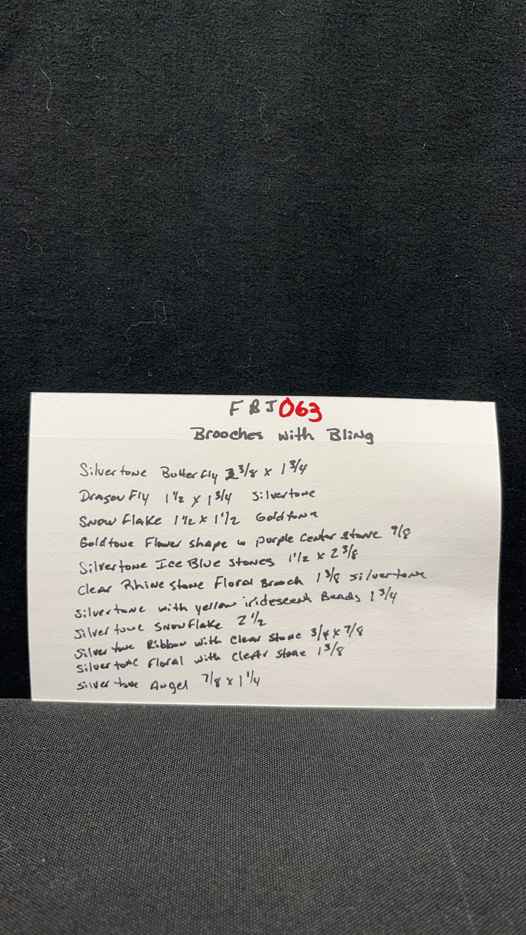 FBJ063
Brooches with Bling
Silvertone Butterfly 3/8 x 1 3/4
Dragon Fly 1 1/2 x 1 3/4 Silvertone
Snow flake 1 1/2 x 1 1/2 Goldtone
Goldtone Flower shape w purple center stone 7/8
Silvertone Ice Blue Stones 1 1/2 x 2 3/8
Clear Rhine stone Floral Broach 1 3/8 silvertone
silvertone with yellow iridescent Beads 1 3/4
silvertone snowflake 2 1/2
silver tone Ribbon with Clear Stone 3/4 x 7/8
silvertone floral with clear stone 1 3/8
silver tone Angel 7/8 x 1 1/4